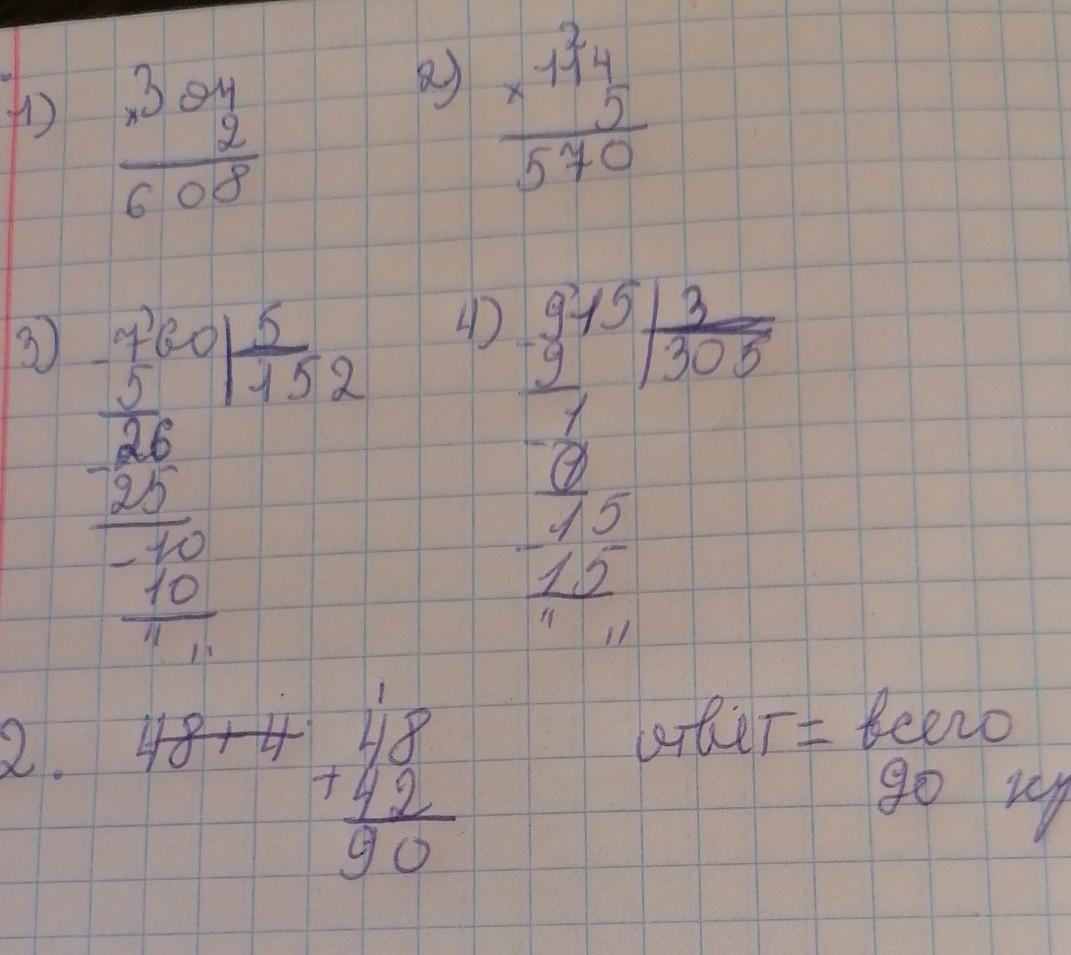 1) × 304
2
608
2) 2
× 114
5
570
3) - 760 | 5
5 | 152
26
- 25
- 10
10
" "
4) - 915 | 3
9 | 305
1
- 0
15
- 15
" "
2. 48+4
1
48
+ 42
90
ответ = всего
90 ку